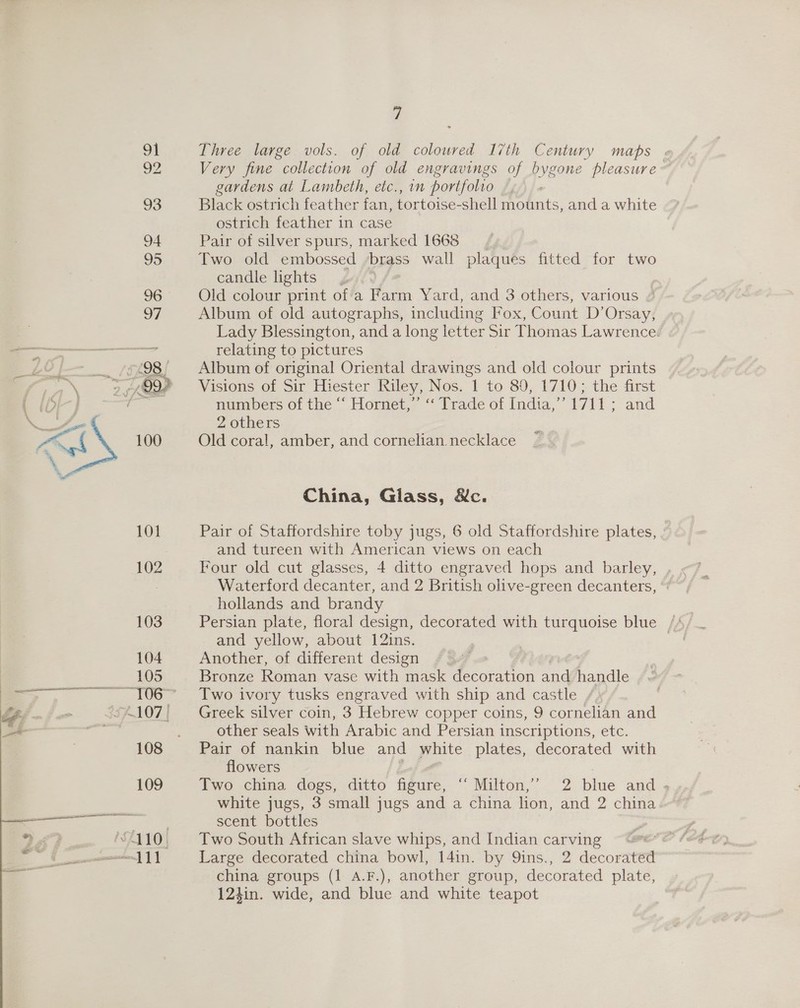 7
91 Three large vols. of old coloured 17th Century maps
92 Very fine collection of old engravings of bygone pleasure
gardens at Lambeth, etc., in portfolio
93 Black ostrich feather fan, tortoise-shell mounts, and a white
ostrich feather in case
94 Pair of silver spurs, marked 1668
95 Two old embossed brass wall plaques fitted for two
candle lights
96 Old colour print of a Farm Yard, and 3 others, various
97 Album of old autographs, including Fox, Count D'Orsay,
Lady Blessington, and a long letter Sir Thomas Lawrence
relating to pictures
98 Album of original Oriental drawings and old colour prints
99 Visions of Sir Hiester Riley, Nos. 1 to 80, 1710; the first
numbers of the “ Hornet,” “ Trade of India,” 1711 ; and
2 others
100 Old coral, amber, and cornelian necklace
China, Glass, &c.
101 Pair of Staffordshire toby jugs, 6 old Staffordshire plates,
and tureen with American views on each
102 Four old cut glasses, 4 ditto engraved hops and barley,
Waterford decanter, and 2 British olive-green decanters,
hollands and brandy
103 Persian plate, floral design, decorated with turquoise blue
and yellow, about 12ins.
104 Another, of different design
105 Bronze Roman vase with mask decoration and handle
106 Two ivory tusks engraved with ship and castle
107 Greek silver coin, 3 Hebrew copper coins, 9 cornelian and
other seals with Arabic and Persian inscriptions, etc.
108 Pair of nankin blue and white plates, decorated with
flowers
109 Two china dogs, ditto figure, “ Milton,” 2 blue and
white jugs, 3 small jugs and a china lion, and 2 china
scent bottles
110 Two South African slave whips, and Indian carving
111 Large decorated china bowl, 14in. by 9ins., 2 decorated
china groups (1 A.F.), another group, decorated plate,
12½in. wide, and blue and white teapot